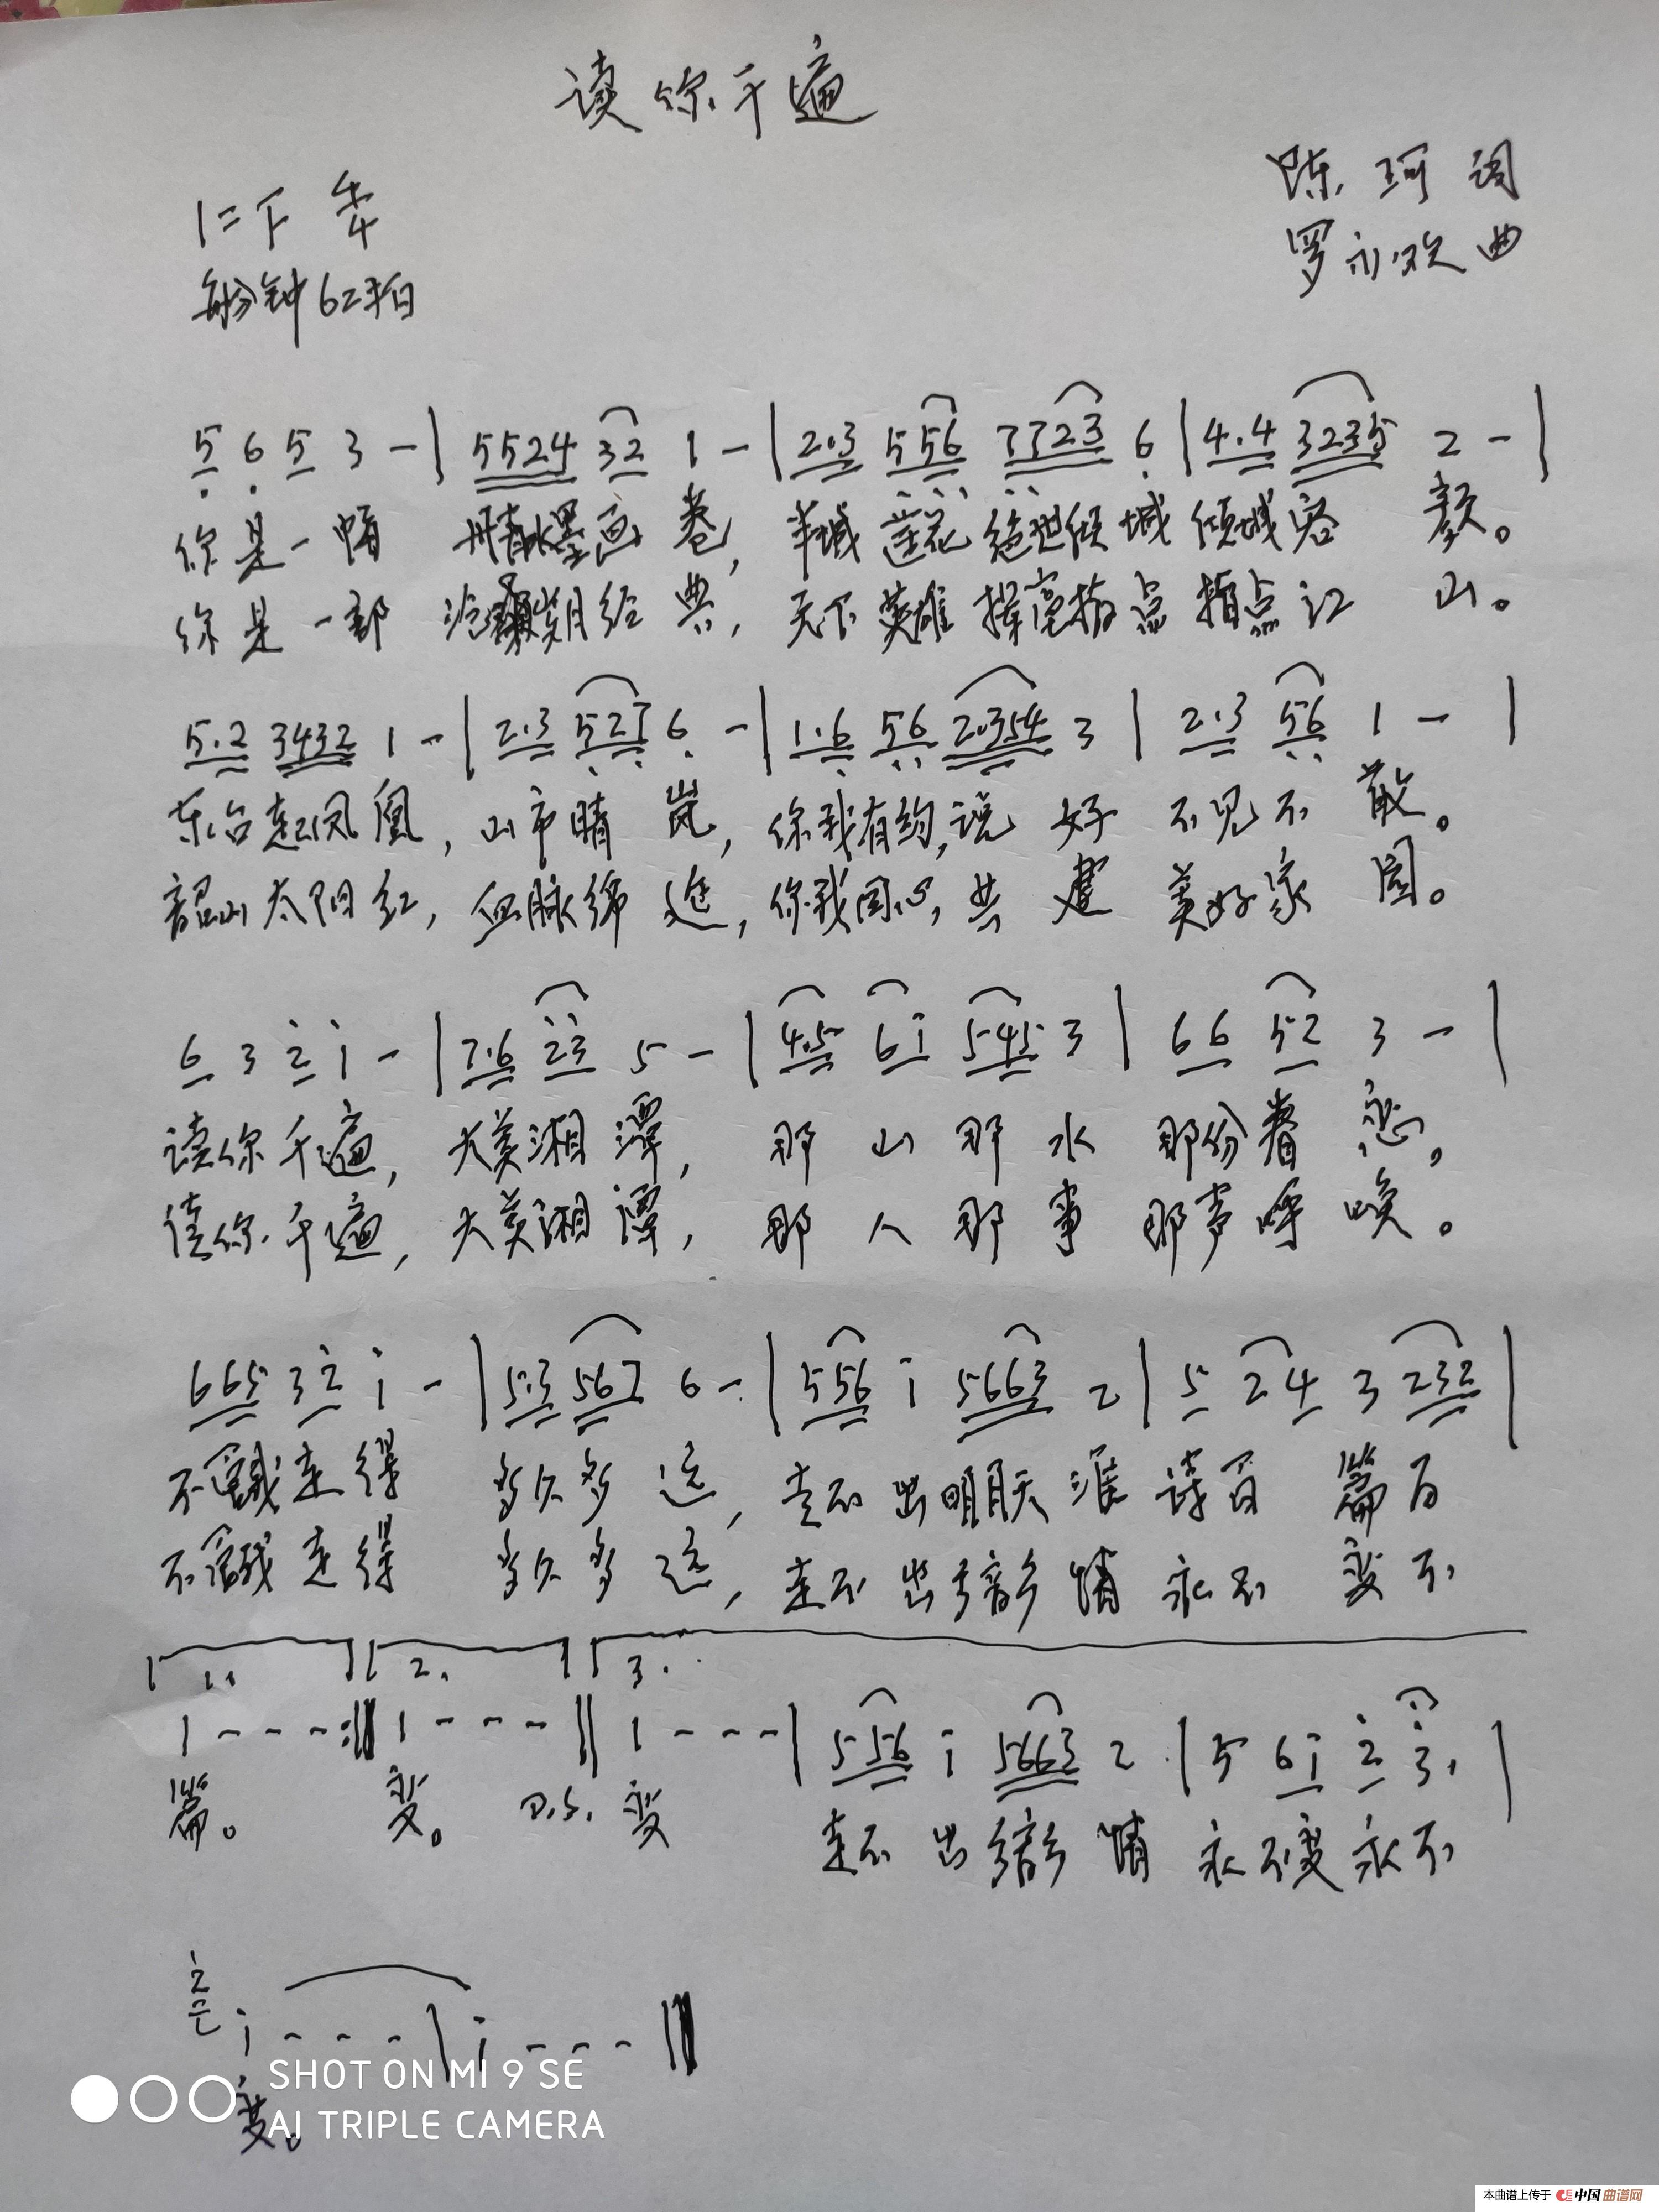 读你千遍
陈珂词
1=F 4/4
罗永欢曲
每分钟62拍
5 6 5 3 - | 5524 32 1 - | 2.3 556 7723 6 | 4.4 3235 2 - |
你是一幅 丹青水墨画卷, 羊城莲花绝世倾城倾城容颜。
你是一部 沧桑岁月经典, 天下英雄挥毫指点指点江山。
5.2 3432 1 - | 2.3 527 6 - | 1.6 56 2.354 3 | 2.3 56 1 - |
东台起凤凰, 山市晴岚, 你我有约,说好不见不散。
韶山太阳红, 血脉绵延, 你我同心,共建美好家园。
6 3 2 i - | 7.6 23 5 - | 4.5 6i 545 3 | 66 52 3 - |
读你千遍, 大美湘潭, 那山那水那份眷恋,
读你千遍, 大美湘潭, 那人那事那声呼唤。
665 32 i - | 5.3 567 6 - | 556 i 5663 2 | 5 24 3 232 |
不管我走得 多久多远, 走不出明月天涯诗百篇百
不管我走得 多久多远, 走不出乡音乡情永不变不
1. 2. 3.
1 - - - :|| 1 - - - || 1 - - - | 556 i 5663 2 | 5 6i 2 3. |
篇。 变。 D.S. 变 走不出乡音乡情永不变永不
2 i - - - | i - - - ||
变。
SHOT ON MI 9 SE
AI TRIPLE CAMERA
本曲谱上传于 中国曲谱网